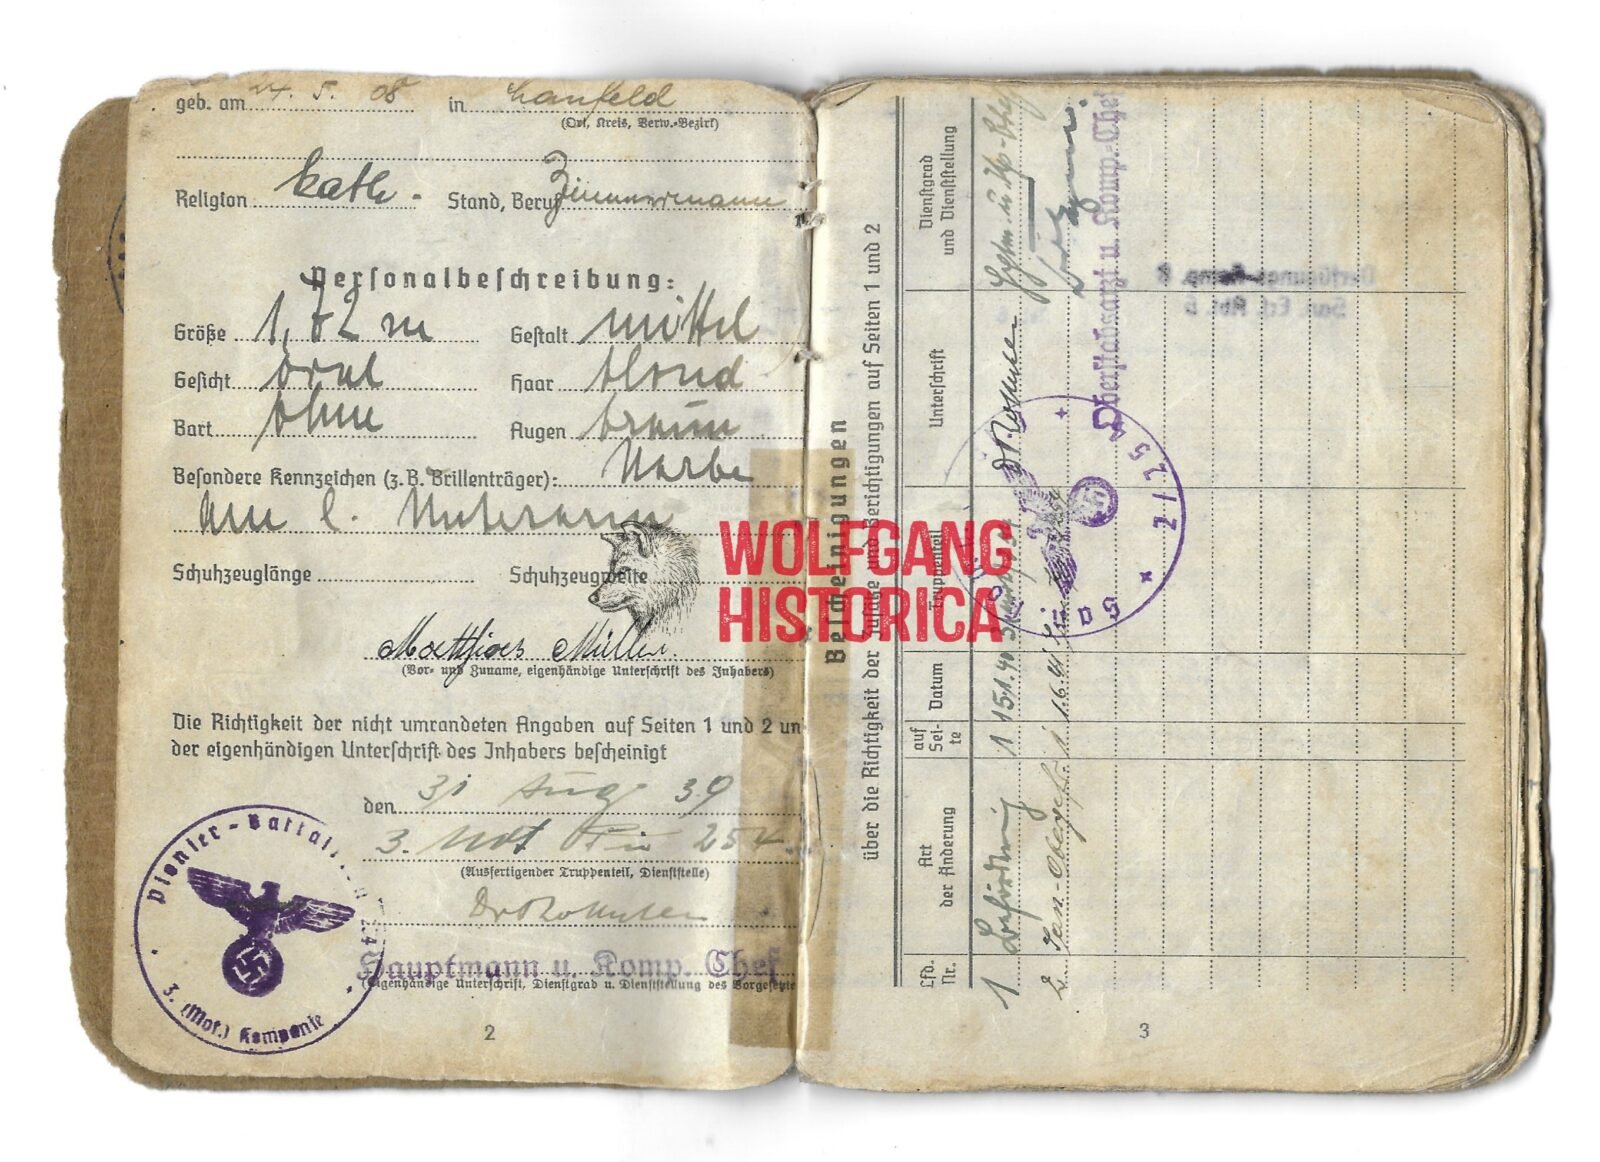 geb. am 24. 5. 08 in Lanfeld
(Ort, Kreis, Verw.-Bezirk)
Religion kath. Stand, Beruf Zimmermann
Personalbeschreibung:
Größe 1,72 m Gestalt mittel
Gesicht oval Haar blond
Bart ohne Augen braun
Besondere Kennzeichen (z. B. Brillenträger): Narbe
am l. Unterarm
Schuhzeuglänge Schuhzeugweite
Matthias Müller.
(Vor- und Zuname, eigenhändige Unterschrift des Inhabers)
Die Richtigkeit der nicht umrandeten Angaben auf Seiten 1 und 2 un
der eigenhändigen Unterschrift des Inhabers bescheinigt
den 31 Aug 39
3. Mot Pi 254
(Ausfertigender Truppenteil, Dienststelle)
Hauptmann u. Komp. Chef
(Eigenhändige Unterschrift, Dienstgrad u. Dienststellung des Vorgesetzte
Pionier-Battaillon 254
3. (Mot.) Kompanie
2
WOLFGANG
HISTORICA
Bescheinigungen
über die Richtigkeit der Zusätze und Berichtigungen auf Seiten 1 und 2
Lfd. Nr.
Art der Änderung
auf Seite
Datum
Truppenteil
Unterschrift
Dienstgrad und Dienststellung
1 Beförderung 1 15.1.40
2. San.-Obergefr. 1 1.6.41
Oberstabsarzt u. Komp.-Chef
2/754
3